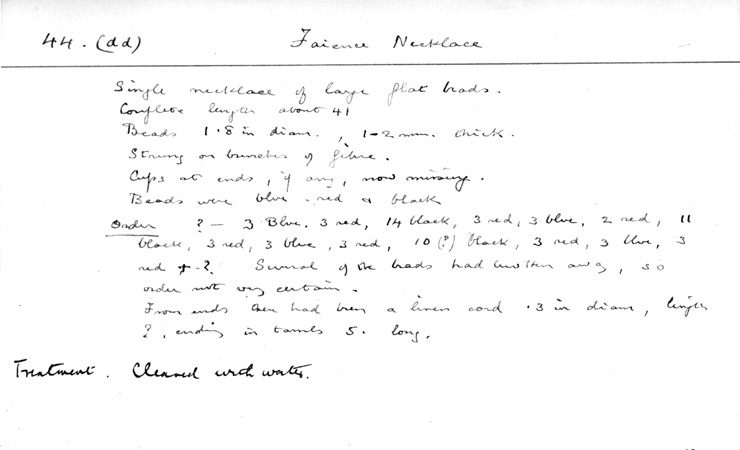 44. (dd) Faience Necklace
Single necklace of large flat beads.
Complete length about 41
Beads 1·8 in diam., 1-2 mm. thick.
Strung on bunches of fibre.
Cups at ends, if any, now missing.
Beads were blue - red & black
Order ? — 3 Blue. 3 red, 14 black, 3 red, 3 blue, 2 red, 11
black, 3 red, 3 blue, 3 red, 10 (?) black, 3 red, 3 blue, 3
red + - ?. Several of the beads had broken away, so
order not very certain.
From ends there had been a linen cord ·3 in diam, length
?, ending in tassels 5. long.
Treatment. Cleaned with water.